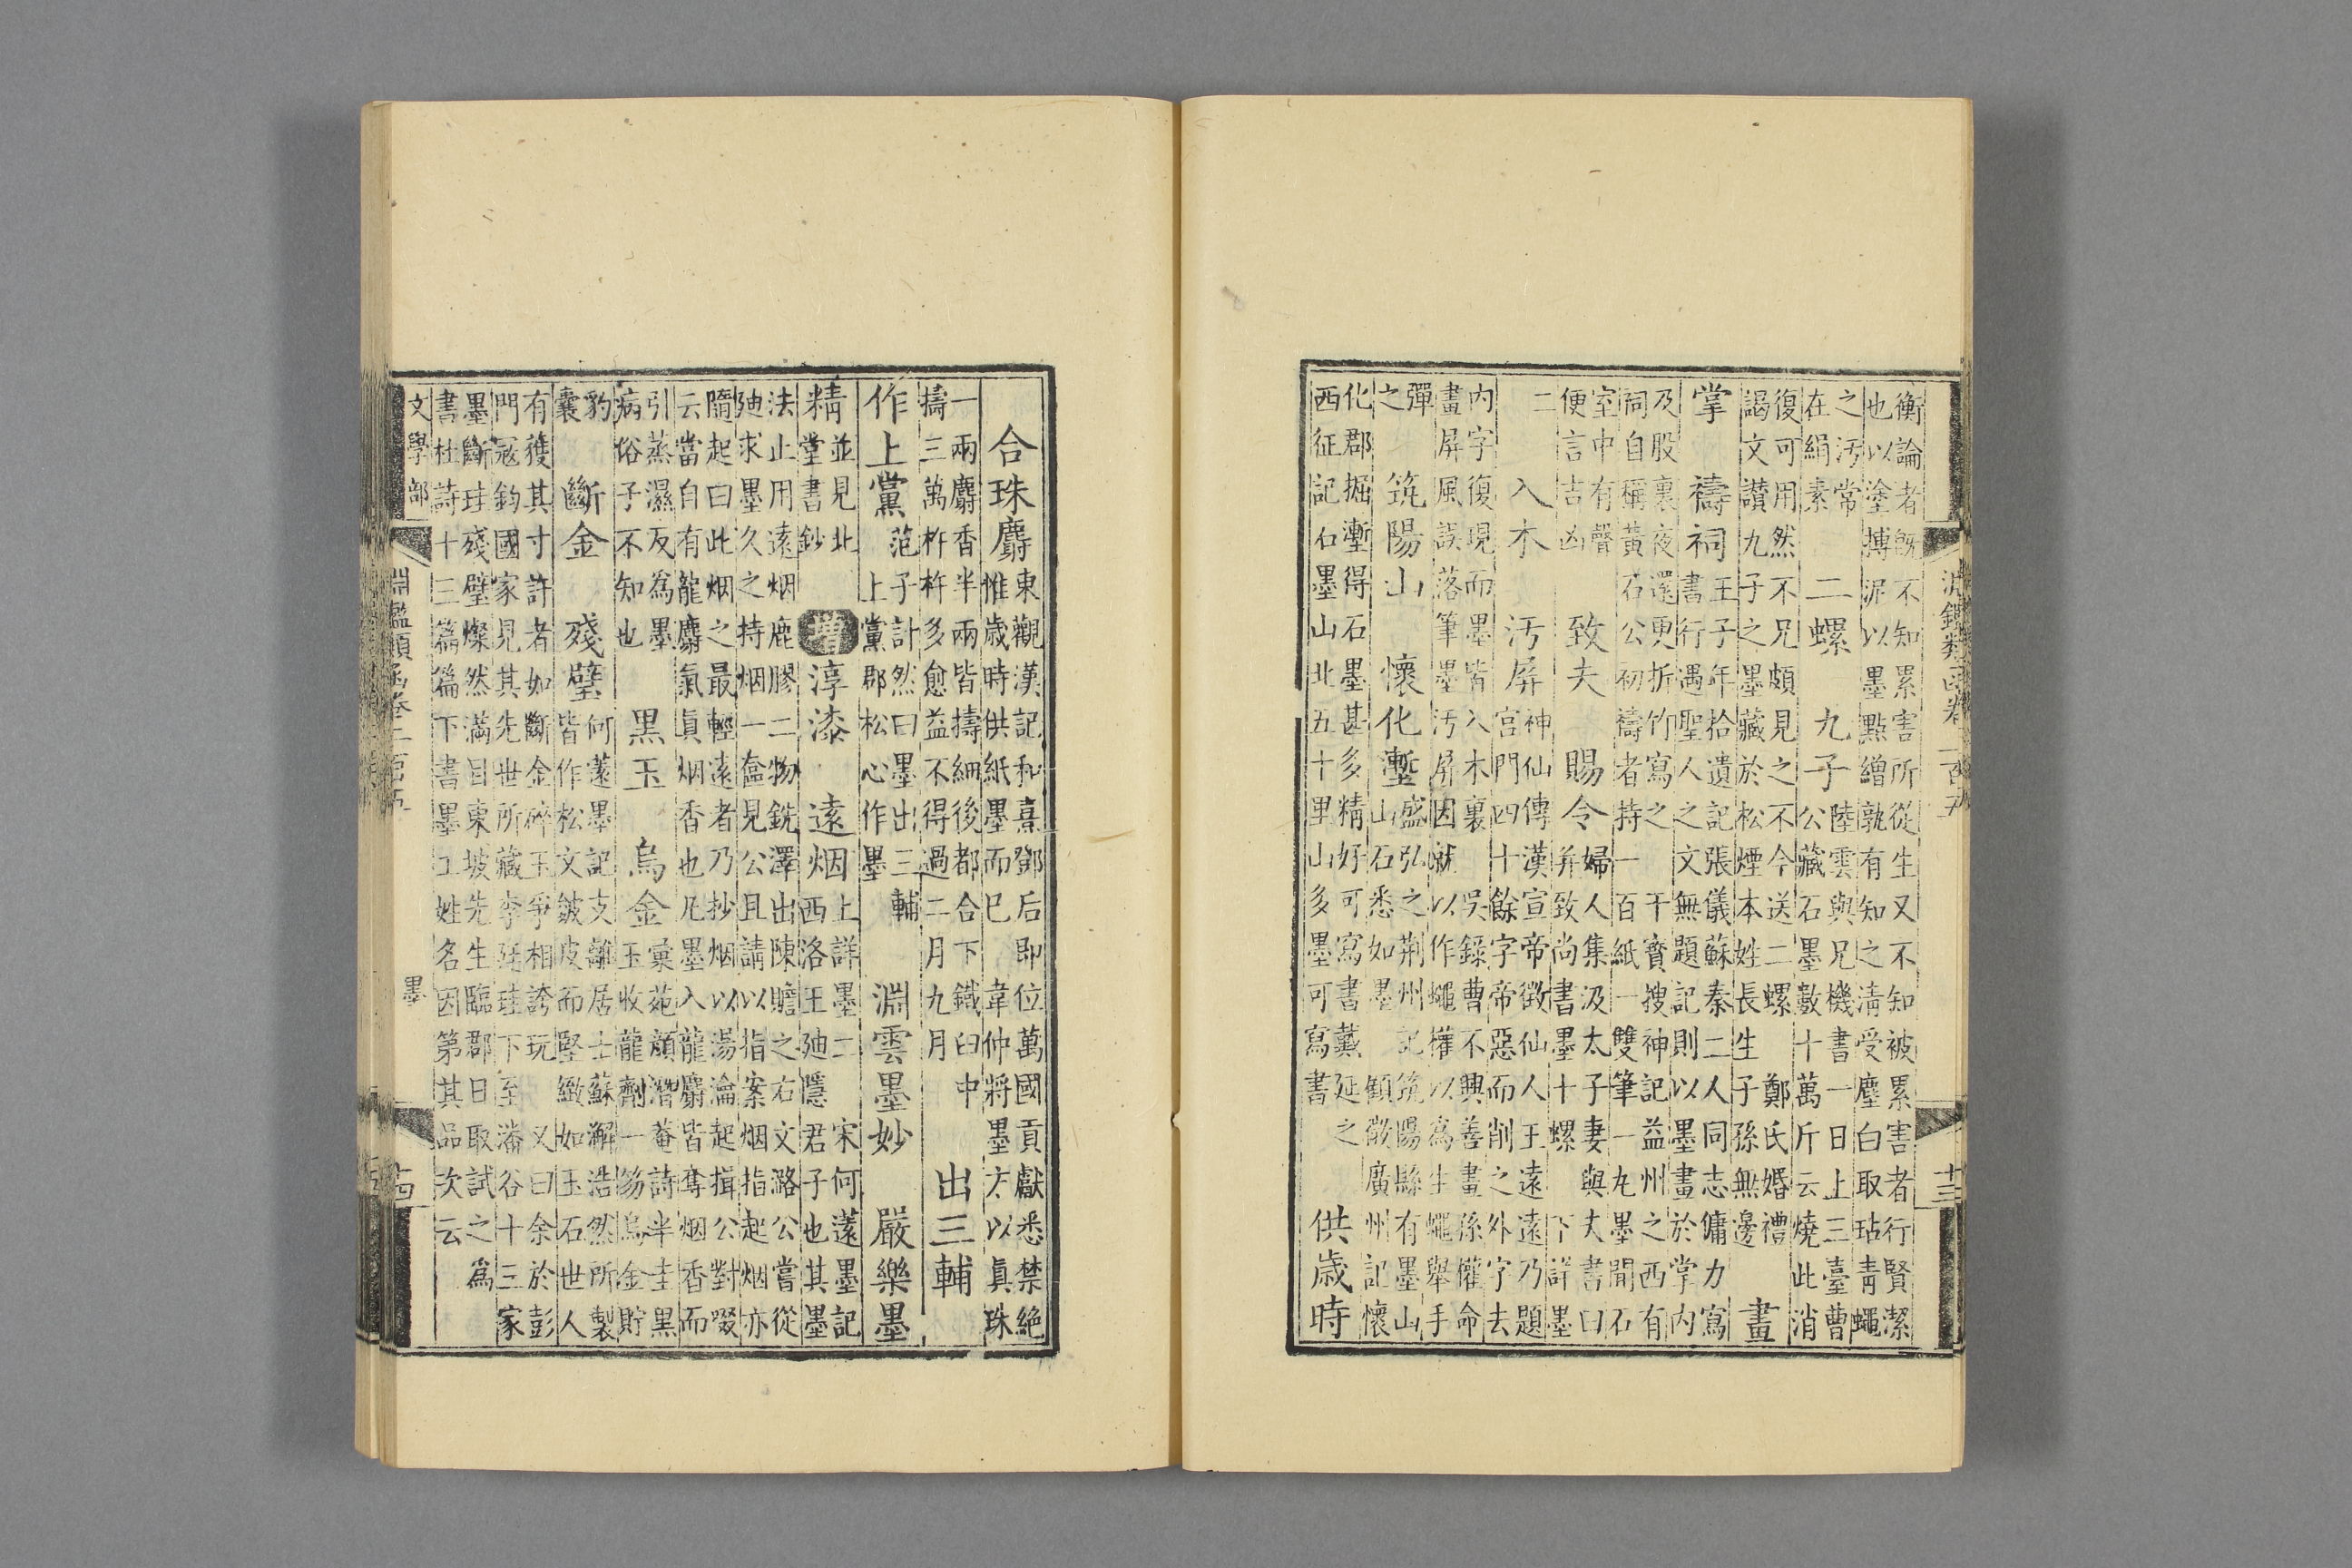 淵鑑類函卷二百五 十三
衡論者旣不知累害所從生又不知被累害者行賢潔
也以塗搏泥以墨點繒孰有知之淸受塵白取玷靑蠅
之汚常
在絹素
二螺 九子
陸雲與兄機書一日上三臺曹
公藏石墨數十萬斤云燒此消
復可用然不兄頗見之不今送二螺 鄭氏婚禮
謁文讃九子之墨藏於松煙本姓長生子孫無邊
畫
掌 禱祠
王子年拾遺記張儀蘇秦二人同志傭力寫
書行遇聖人之文無題記則以墨畫於掌內
及股裏夜還更折竹寫之 干寳搜神記益州之西有
祠自稱黃石公初禱者持一百紙一雙筆一丸墨聞石
室中有聲
便言吉凶
致夫 賜令
婦人集汲太子妻與夫書曰
并致尚書墨十螺 下詳墨
二
入木 汚屏
神仙傳漢宣帝徵仙人王遠遠乃題
宮門四十餘字帝惡而削之外字去
內字復現而墨皆入木裏 吳錄曹不興善畫孫權命
畫屏風誤落筆墨汚屏因就以作蠅權以爲生蠅舉手
彈
之
筑陽山 懷化塹
盛弘之荆州記筑陽縣有墨山
山石悉如墨 顧微廣州記懷
化郡掘塹得石墨甚多精好可寫書 戴延之
西征記石墨山北五十里山多墨可寫書
供歲時
合珠麝
東觀漢記和熹鄧后即位萬國貢獻悉禁絶
惟歲時供紙墨而已 韋仲將墨方以眞珠
一兩麝香半兩皆擣細後都合下鐵臼中
擣三萬杵杵多愈益不得過二月九月
出三輔
作上黨
范子計然曰墨出三輔
上黨郡松心作墨
淵雲墨妙 嚴樂墨
精
並見北
堂書鈔
增 淳漆 遠烟
上詳墨二 宋何薳墨記
西洛王廸隱君子也其墨
法止用遠烟鹿膠二物銑澤出陳贍之右文潞公嘗從
廸求墨久之持烟一奩見公且請以指案烟指起烟亦
隨起曰此烟之最輕遠者乃抄烟以湯瀹起揖公對啜
云當自有龍麝氣眞烟香也凡墨入龍麝皆奪烟香而
引蒸濕反爲墨
病俗子不知也
黑玉 烏金
彙苑顏潛菴詩半圭黑
玉收龍劑一笏烏金貯
豹
囊
斷金 殘璧
何薳墨記支離居士蘇澥浩然所製
皆作松文皴皮而堅緻如玉石世人
有獲其寸許者如斷金碎玉爭相誇玩 又曰余於彭
門寇鈞國家見其先世所藏李廷珪下至潘谷十三家
墨斷珪殘璧燦然滿目東坡先生臨郡日取試之爲
書杜詩十三篇篇下書墨工姓名因第其品次云
文學部 淵鑑類函卷二百五 墨 十四